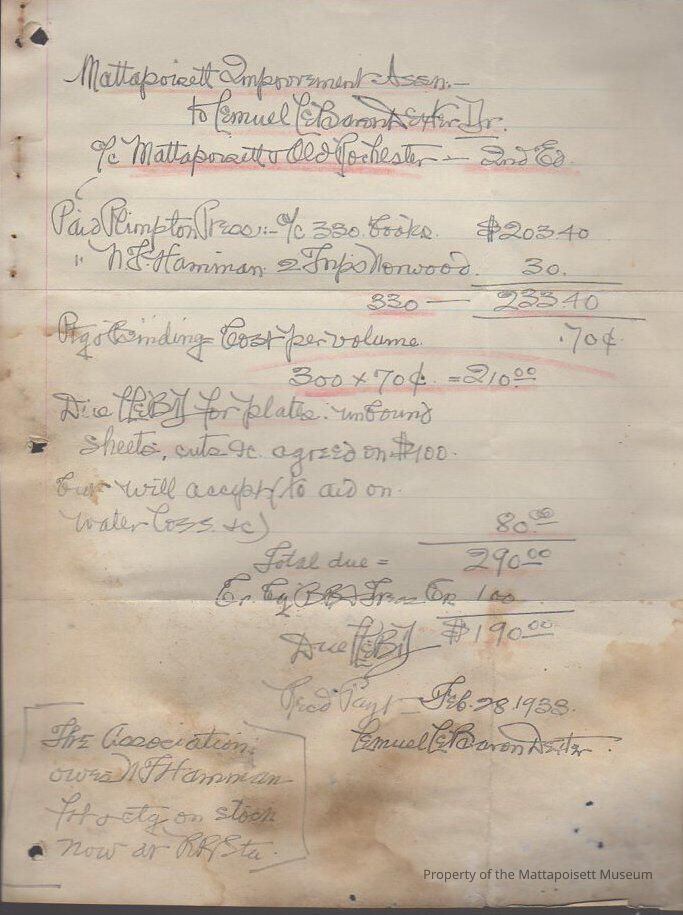 Mattapoisett Improvement Assn.-
to Lemuel LeBaron Dexter Dr.
a/c Mattapoisett & Old Rochester - 2nd Ed.
Paid Plimpton Press:- a/c 330 books. $203.40
" N.F. Hamman. 2 Trips Norwood. 30.
330 — 233.40
Binding = Cost per volume. .70¢
300 x 70¢. = 210.00
Due LeBD for plates. unbound
sheets, cuts &c. agreed on $100.
but will accept (to aid on
water loss. &c) 80.00
Total due = 290.00
Cr. By Treas Cr 100
Due LeBD $190.00
Recd Payt - Feb. 28 1933.
Lemuel LeBaron Dexter.
The Association
owes N F Hamman
for ctg on stock
now at RR Sta.
Property of the Mattapoisett Museum